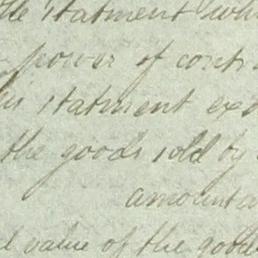 the statment whi
power of cont
his statment exc
the goods sold by
amounta
l value of the goods